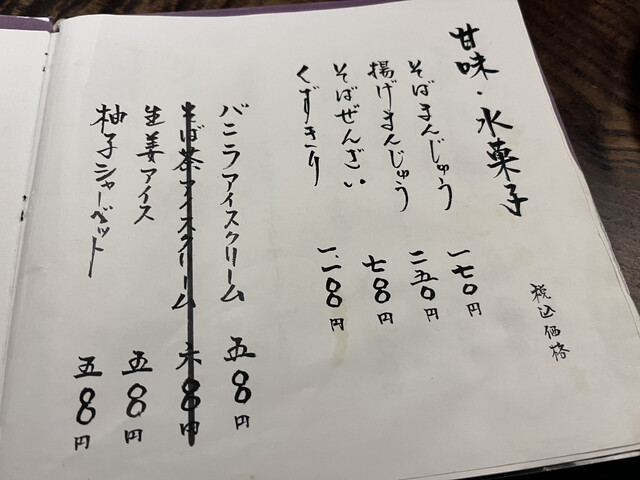 甘味・水菓子
税込価格
そばまんじゅう 一七〇円
揚げまんじゅう 二五〇円
そばぜんざい 七〇〇円
くずきり 一、一〇〇円
バニラアイスクリーム 五〇〇円
そば茶アイスクリーム 六〇〇円
生姜アイス 五〇〇円
柚子シャーベット 五〇〇円